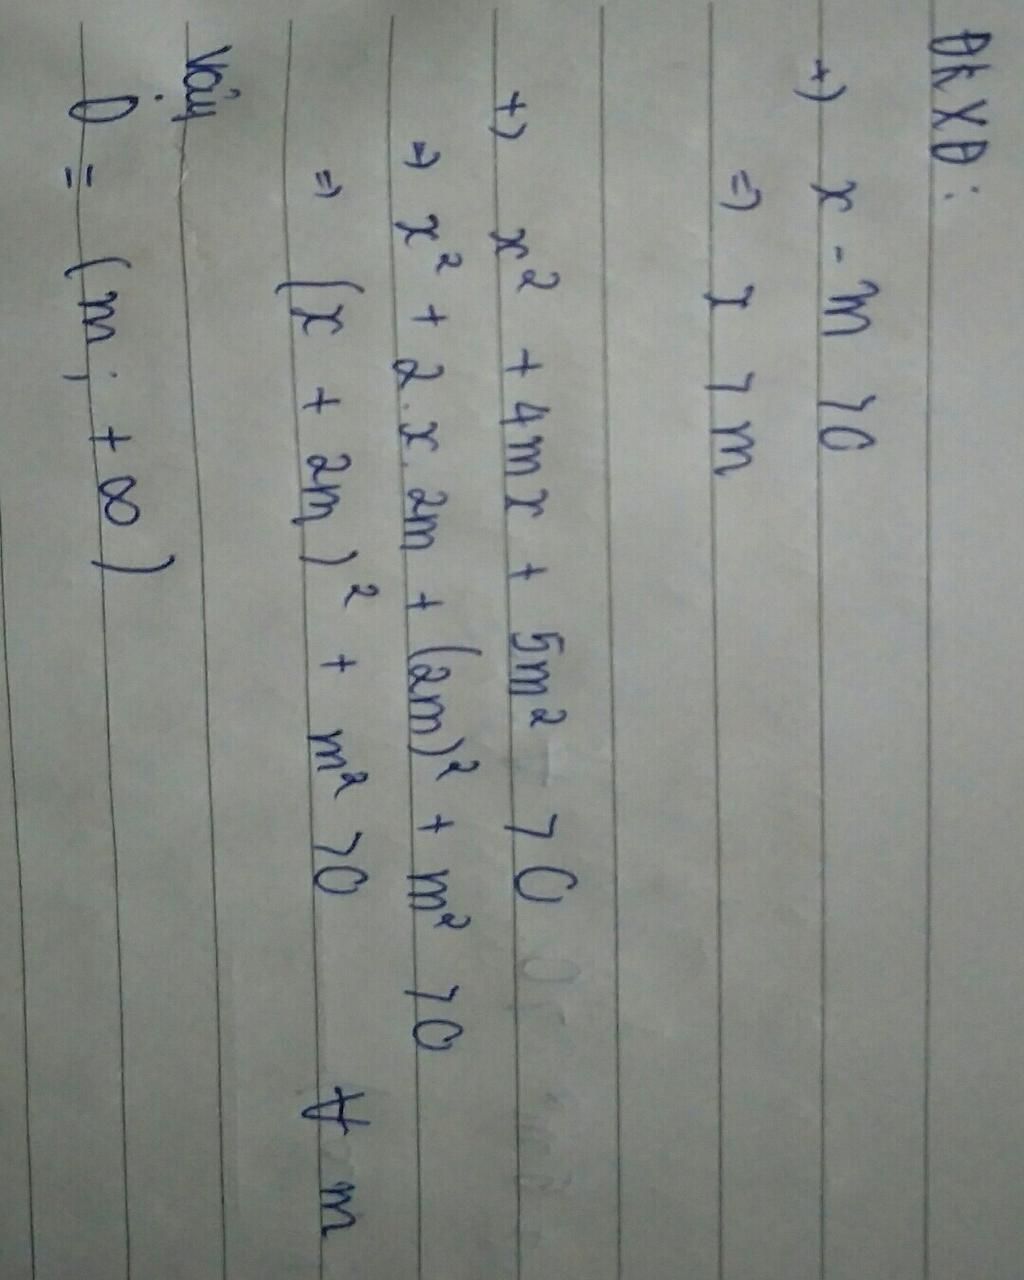 ĐKXĐ:
+) x - m > 0
=) x > m
+) x² + 4mx + 5m² > 0
=) x² + 2.x.2m + (2m)² + m² > 0
=) (x + 2m)² + m² > 0 ∀ m
Vậy
D = (m; +∞)